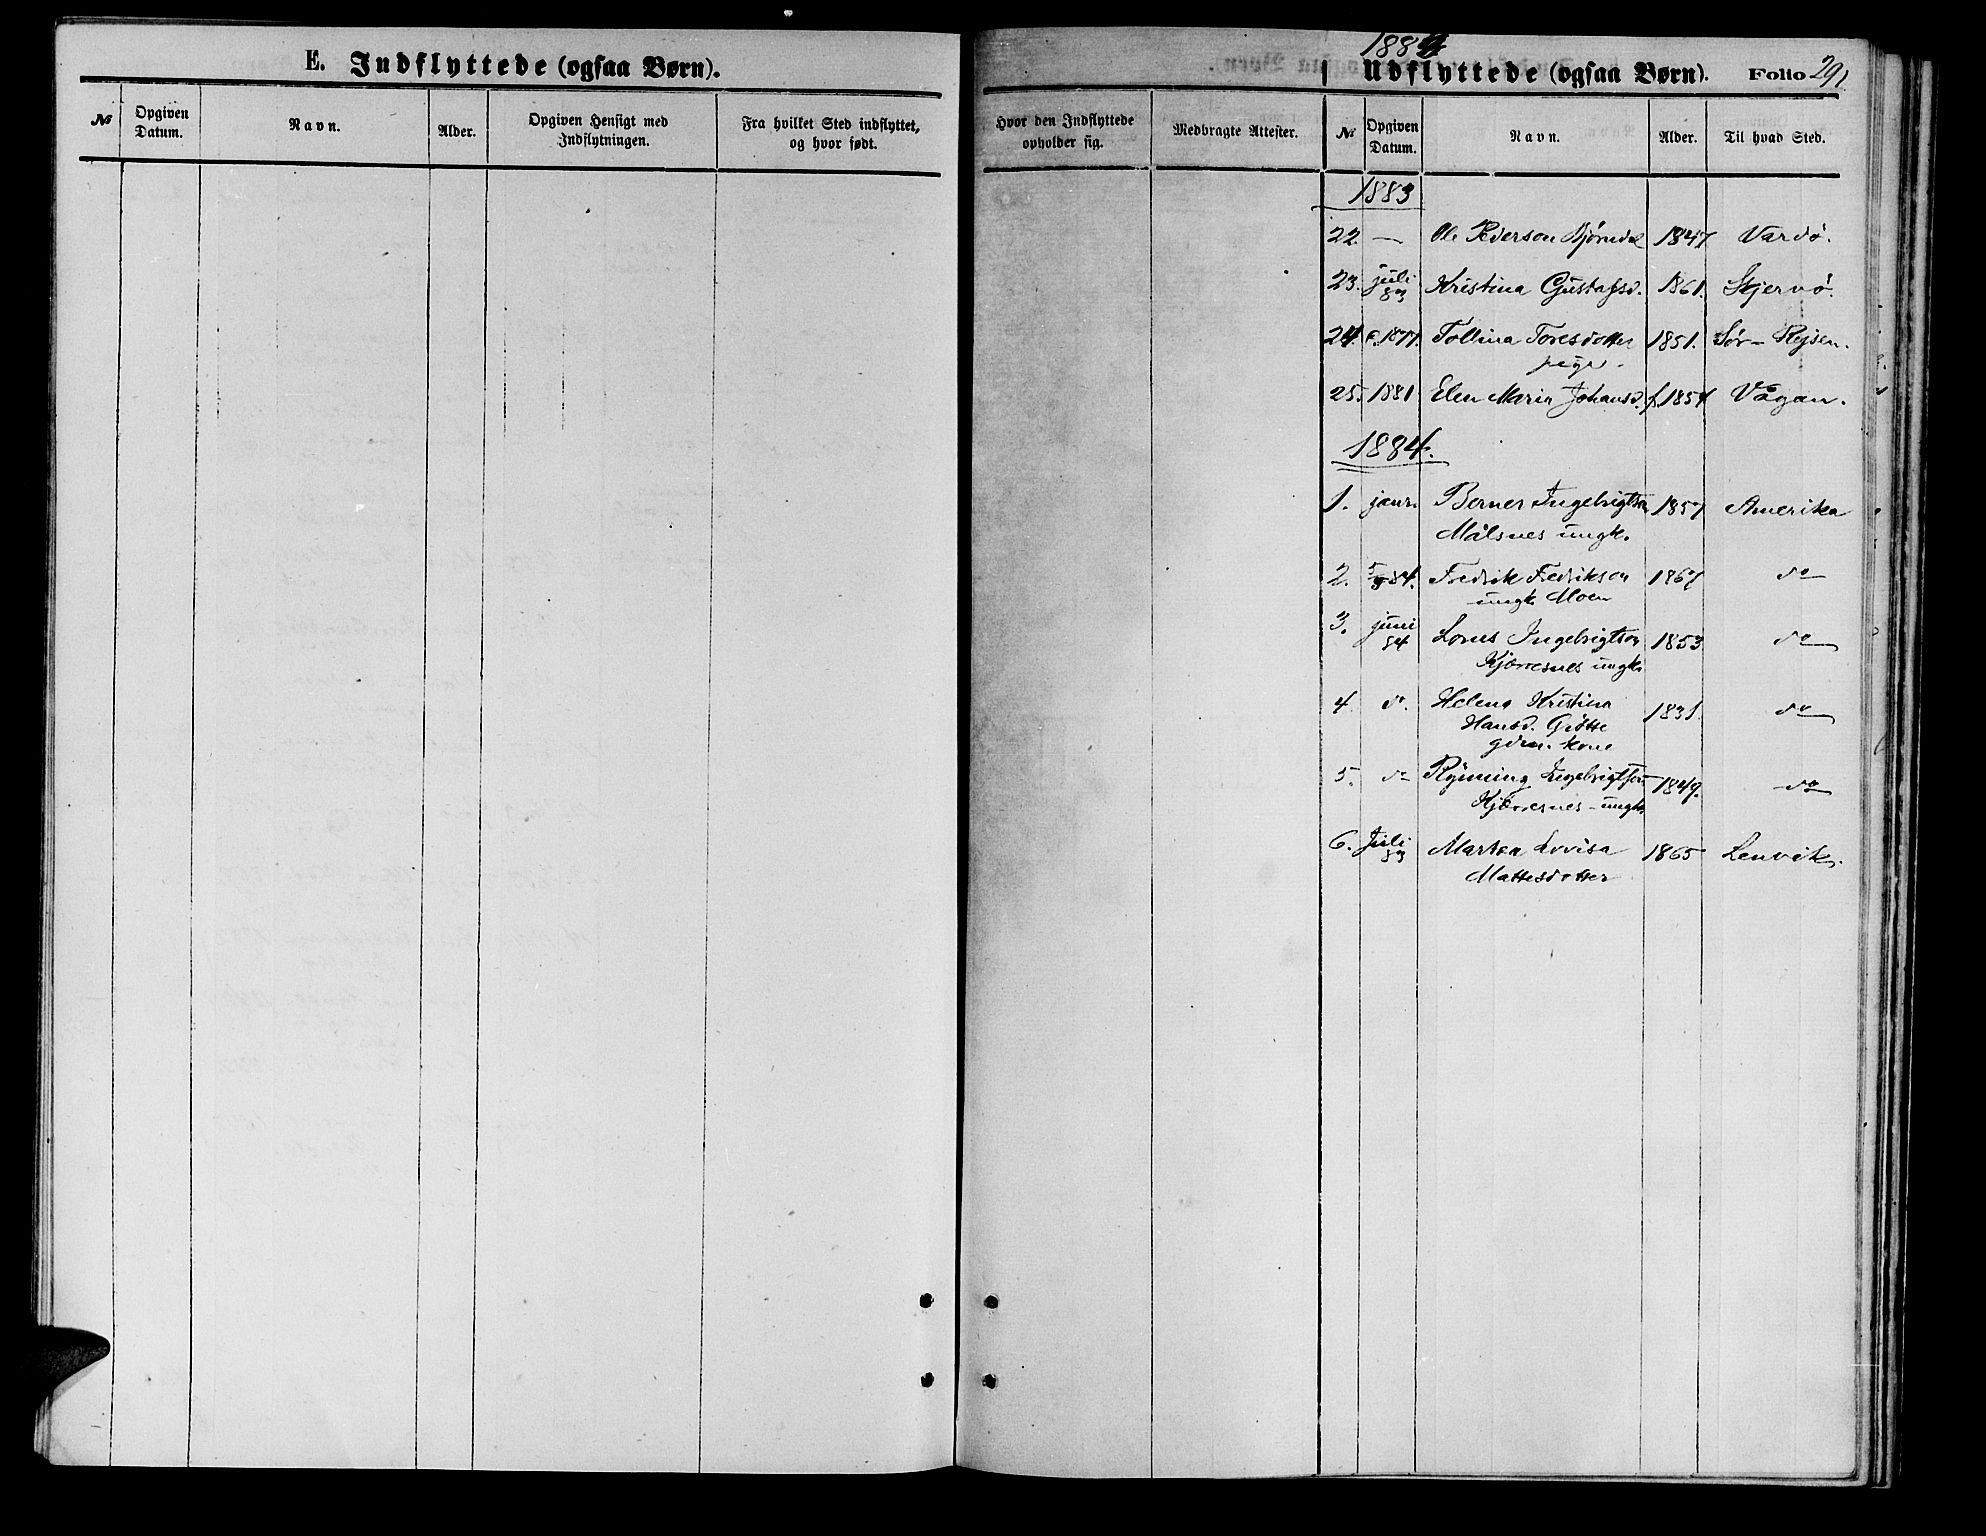 E. Indflyttede (ogsaa Børn).
№ Opgiven Datum. Navn. Alder. Opgiven Hensigt med Indflytningen. Fra hvilket Sted indflyttet, og hvor født.
1884
Udflyttede (ogsaa Børn). Folio 291
Hvor den Indflyttede opholder sig. Medbragte Attester. № Opgiven Datum. Navn. Alder. Til hvad Sted.
1883
22. — Ole Pederson 1847 Vardö.
23. juli 83 Kristina Gustafsd. 1861. Skjervö.
24. 1877. Tollina Toresdotter 1851. Sör-Rejsen.
pige.
25. 1881 Elen Maria Johansd. f. 1854 Vågan.
1884.
1. janr. Berner Ingebrigtson 1857 Amerika
Målsnes ungk.
2. 5/8 84. Fredrik Fredrikson 1867 do
ungk. Moen
3. juni 84 Lorns Ingebrigtson 1853 do
Kjærresnes ungk.
4 do. Helena Kristina 1831. do
Hansd. Gjötte
gdm. kone
5. do Rÿnning Ingebrigtson 1849. do
Kjærresnes - ungk.
6. Juli 83 Martea Lovisa 1865 Lenvik.
Mattesdotter